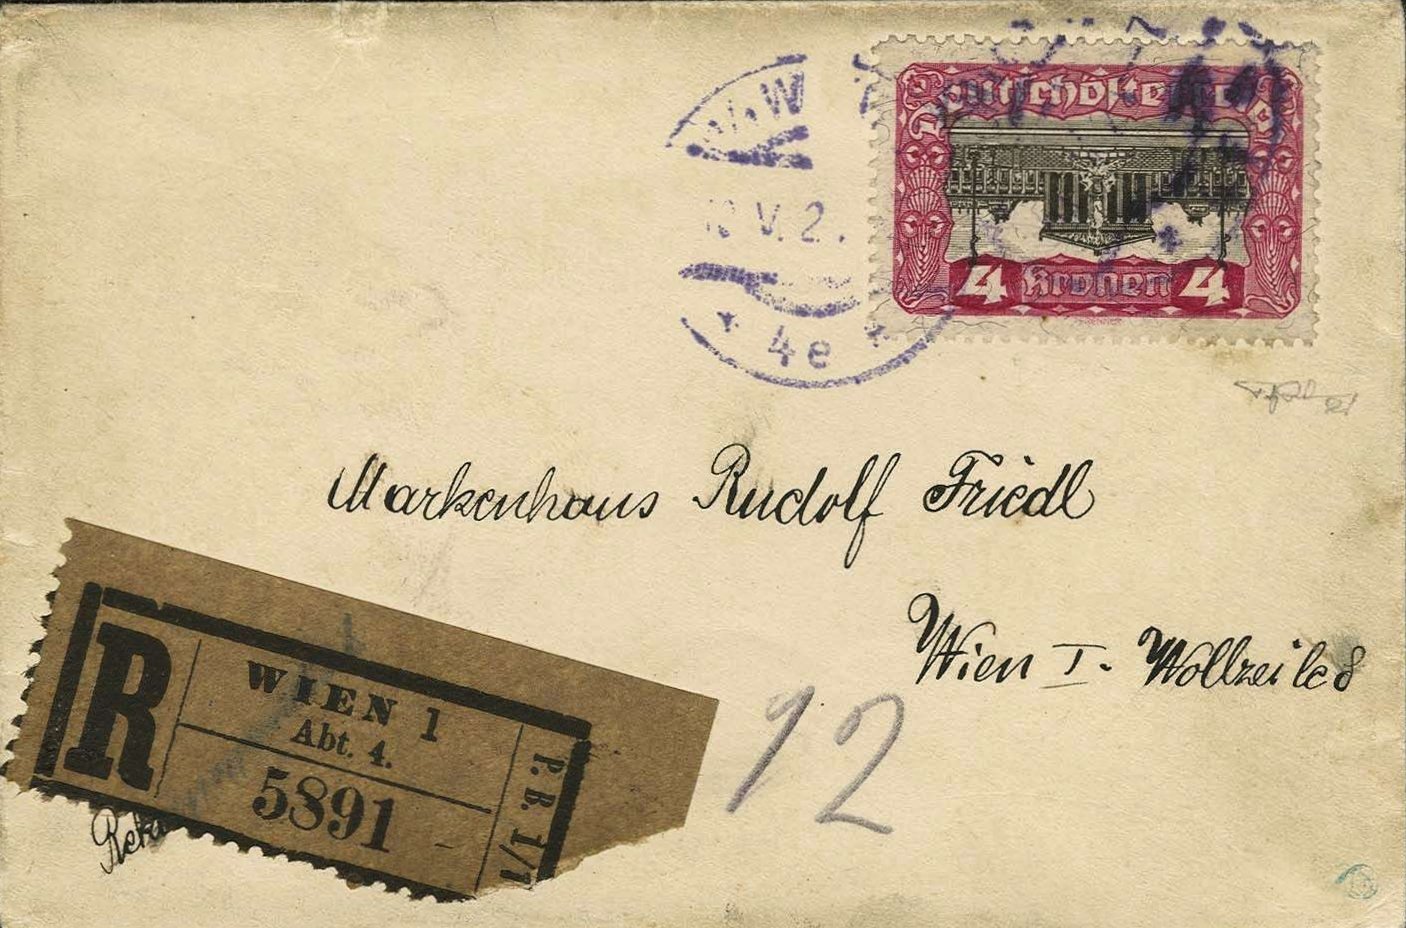 Deutschösterreich
4 Kronen 4
V. 2
* 4e *
Markenhaus Rudolf Friedl
Wien I. Wollzeile 8
R
WIEN 1
Abt. 4.
5891
P. B. 1/1
12